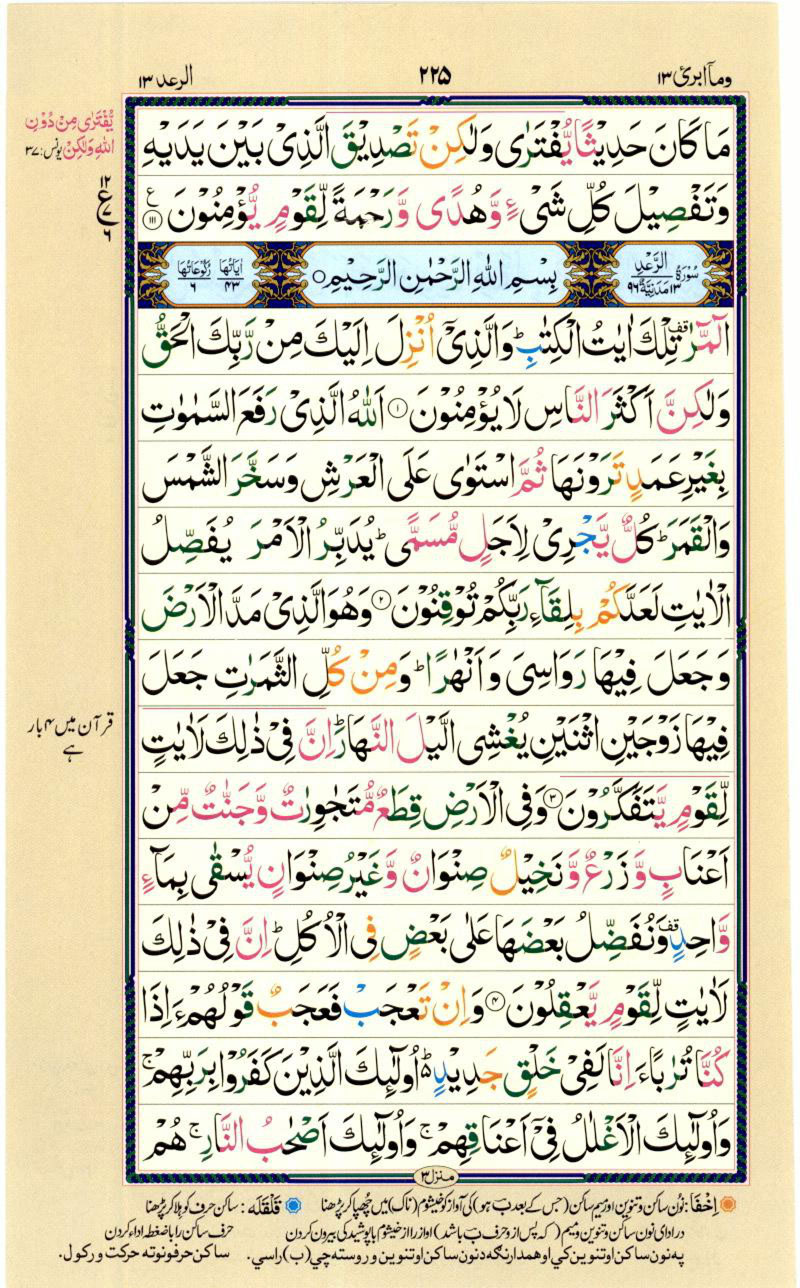 وما ابرئ ١٣
٢٢٥
الرعد ١٣
مَا كَانَ حَدِيْثًا يُّفْتَرٰى وَلٰكِنْ تَصْدِيْقَ الَّذِىْ بَيْنَ يَدَيْهِ
وَتَفْصِيْلَ كُلِّ شَىْءٍ وَّهُدًى وَّرَحْمَةً لِّقَوْمٍ يُّؤْمِنُوْنَ ۝۱۱۱ ع
سُوْرَةُ الرَّعْدِ ١٣ مَدَنِيَّةٌ ٩٦
بِسْمِ اللّٰهِ الرَّحْمٰنِ الرَّحِيْمِ ۝
اٰيَاتُهَا ٤٣ رُكُوْعَاتُهَا ٦
الٓمّٓرٰ ۛقف تِلْكَ اٰيٰتُ الْكِتٰبِ ؕ وَالَّذِىْٓ اُنْزِلَ اِلَيْكَ مِنْ رَّبِّكَ الْحَقُّ
وَلٰكِنَّ اَكْثَرَ النَّاسِ لَا يُؤْمِنُوْنَ ۝۱ اَللّٰهُ الَّذِىْ رَفَعَ السَّمٰوٰتِ
بِغَيْرِ عَمَدٍ تَرَوْنَهَا ثُمَّ اسْتَوٰى عَلَى الْعَرْشِ وَسَخَّرَ الشَّمْسَ
وَالْقَمَرَ ؕ كُلٌّ يَّجْرِىْ لِاَجَلٍ مُّسَمًّى ؕ يُدَبِّرُ الْاَمْرَ يُفَصِّلُ
الْاٰيٰتِ لَعَلَّكُمْ بِلِقَآءِ رَبِّكُمْ تُوْقِنُوْنَ ۝۲ وَهُوَ الَّذِىْ مَدَّ الْاَرْضَ
وَجَعَلَ فِيْهَا رَوَاسِىَ وَاَنْهٰرًا ؕ وَمِنْ كُلِّ الثَّمَرٰتِ جَعَلَ
فِيْهَا زَوْجَيْنِ اثْنَيْنِ يُغْشِى الَّيْلَ النَّهَارَ ؕ اِنَّ فِىْ ذٰلِكَ لَاٰيٰتٍ
لِّقَوْمٍ يَّتَفَكَّرُوْنَ ۝۳ وَفِى الْاَرْضِ قِطَعٌ مُّتَجٰوِرٰتٌ وَّجَنّٰتٌ مِّنْ
اَعْنَابٍ وَّزَرْعٌ وَّنَخِيْلٌ صِنْوَانٌ وَّغَيْرُ صِنْوَانٍ يُّسْقٰى بِمَآءٍ
وَّاحِدٍ قف وَنُفَضِّلُ بَعْضَهَا عَلٰى بَعْضٍ فِى الْاُكُلِ ؕ اِنَّ فِىْ ذٰلِكَ
لَاٰيٰتٍ لِّقَوْمٍ يَّعْقِلُوْنَ ۝۴ وَاِنْ تَعْجَبْ فَعَجَبٌ قَوْلُهُمْ ءَاِذَا
كُنَّا تُرٰبًا ءَاِنَّا لَفِىْ خَلْقٍ جَدِيْدٍ ؕ اُولٰٓئِكَ الَّذِيْنَ كَفَرُوْا بِرَبِّهِمْ ۚ
وَاُولٰٓئِكَ الْاَغْلٰلُ فِىْٓ اَعْنَاقِهِمْ ۚ وَاُولٰٓئِكَ اَصْحٰبُ النَّارِ ۚ هُمْ
منزل ٣
يُّفْتَرٰى مِنْ دُوْنِ
اللّٰهِ وَلٰكِنْ یونس: ۳۷
١٢
ع
٧
٦
قرآن میں ۴ بار
ہے
اِخْفَا: نُون ساکن و تنوین اور میم ساکن (جس کے بعد بَ ہو) کی آواز کو خیشوم (ناک) میں چُھپا کر پڑھنا قَلْقَلَه: ساکن حرف کو ہلا کر پڑھنا
در ادای نون ساکن و تنوین و میم (که پس از و حرف بَ باشد) اواز را از خیشوم با پوشیدگی بیرون کردن حرف ساکن را با ضغطه اداء کردن
په نون ساکن او تنوین کي او همدارنګه د نون ساکن او تنوین وروسته چي (ب) راسي. ساکن حرفونو ته حرکت ورکول.